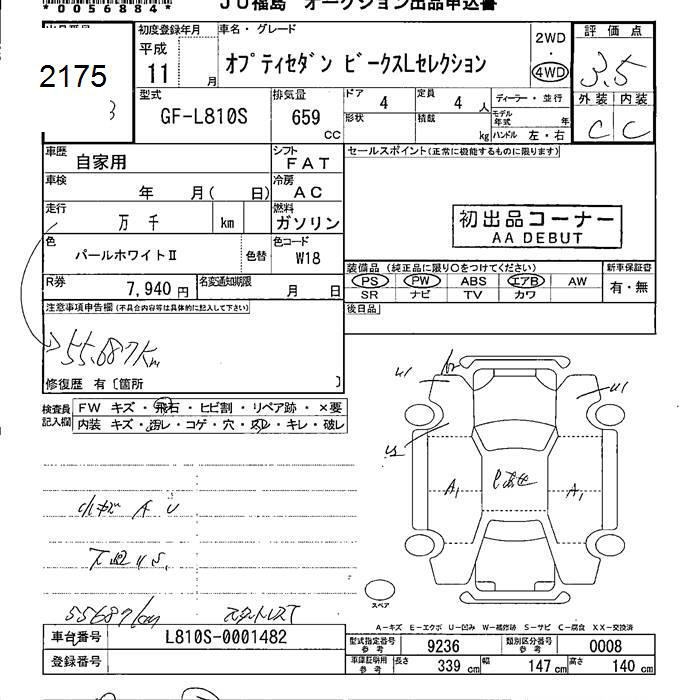 *0056884*
JU福島 オークション出品申込書
2175
3
初度登録年月
平成
11 月
車名・グレード
オプティセダン ビークスLセレクション
2WD
・
4WD
評価点
3.5
外装 内装
C C
型式
GF-L810S
排気量
659
CC
ドア 4
定員 4 人
形状
積載 kg
ディーラー・並行
モデル年式 年
ハンドル 左・右
車歴
自家用
シフト
FAT
セールスポイント(正常に機能するものに限ります)
車検
年 月( 日)
冷房
AC
走行
万 千 km
燃料
ガソリン
初出品コーナー
AA DEBUT
色
パールホワイトⅡ
色替
色コード
W18
装備品 (純正品に限り○をつけてください)
新車保証書
PS PW ABS エアB AW
有・無
SR ナビ TV カワ
R券
7,940 円
名変通知期限
月 日
後日品
注意事項申告欄(不具合内容等は具体的に記入して下さい)
55.687Km
修復歴 有〔箇所 〕
検査員
記入欄
FW キズ・飛石・ヒビ割・リペア跡・×要
内装 キズ・汚レ・コゲ・穴・スレ・キレ・破レ
A U
55687km
U1
U1
A1
A1
スペア
A-キズ E-エクボ U-凹み W-補修跡 S-サビ C-腐食 XX-交換済
車台番号
L810S-0001482
登録番号
型式指定番号
参考
9236
類別区分番号
参考
0008
車庫証明用
参考
長さ 339 cm
幅 147 cm
高さ 140 cm